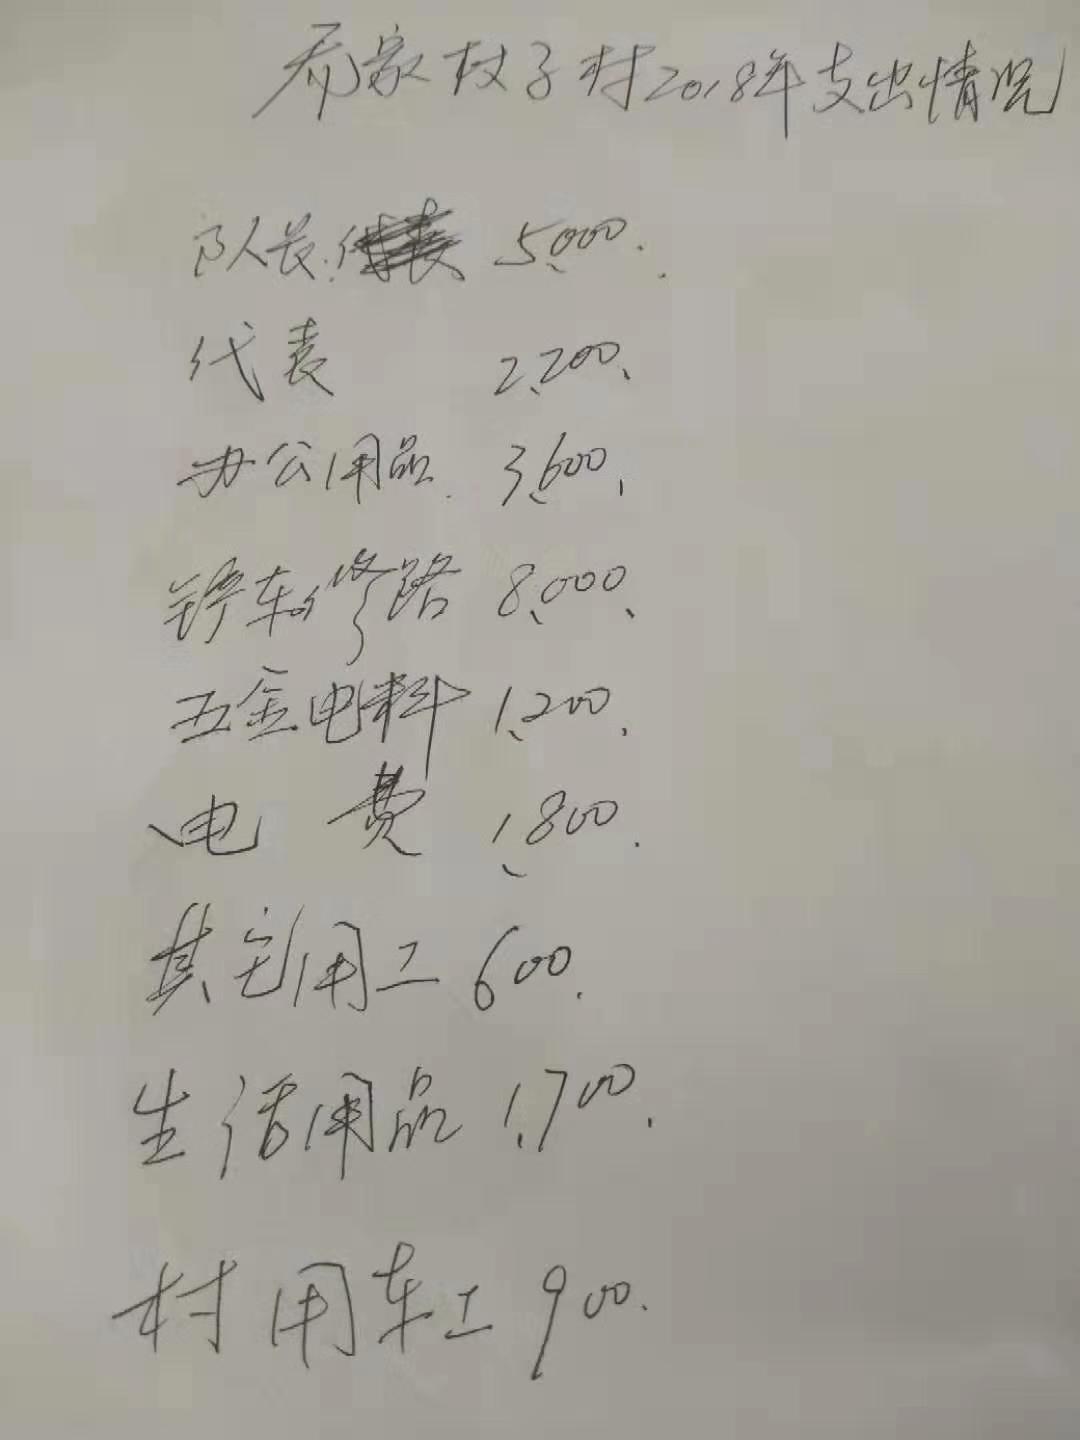 乔家杖子村2018年支出情况
队长 5,000.
代表 2,200.
办公用品 3,600.
铲车修路 8,000.
五金电料 1,200.
电费 1,800.
其它用工 600.
生活用品 1,700.
村用车工 900.